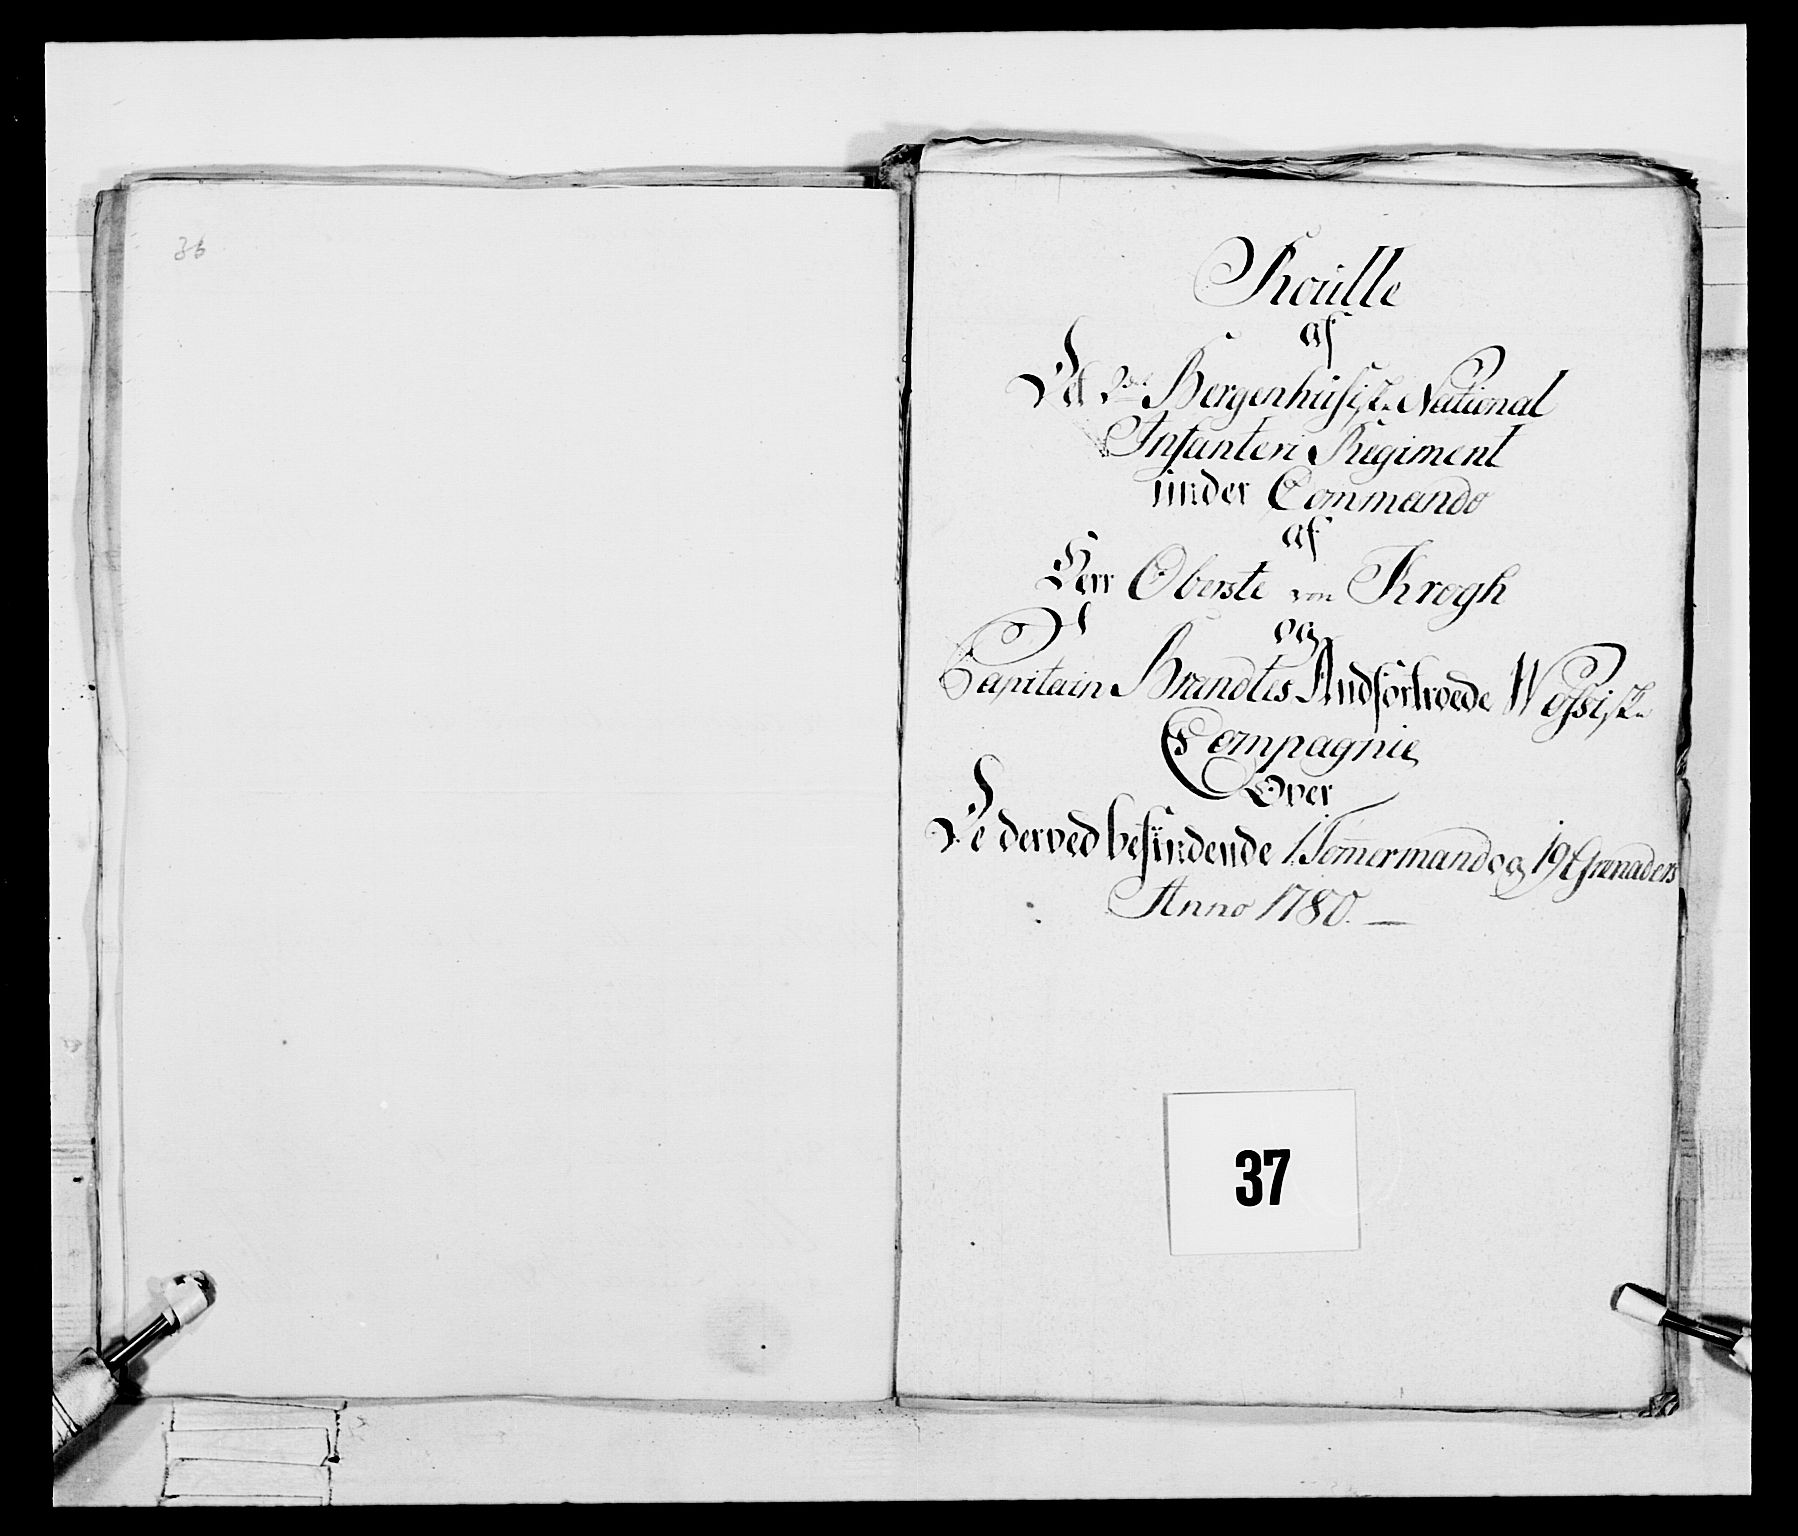 36
Roülle
af
Det 2det Bergenhüsiske National
Infanteri Regiment
ünder Commando
af
Herr Oberste von Krogh
og
Capitain Brandtes Andfortroede Wossiske
Compagnie
Over
De derved befindende 1 Tømermand og 19 Grenaders
Anno 1780.
37